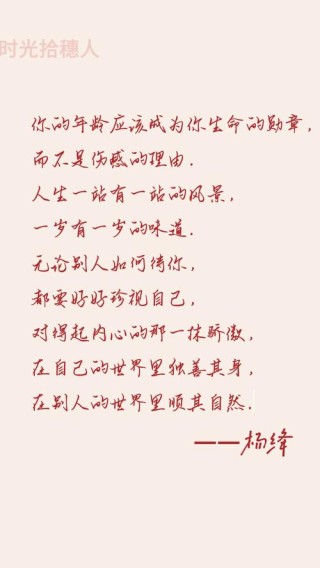 时光拾穗人
你的年龄应该成为你生命的勋章，
而不是伤感的理由．
人生一站有一站的风景，
一岁有一岁的味道．
无论别人如何待你，
都要好好珍视自己，
对得起内心的那一抹骄傲，
在自己的世界里独善其身，
在别人的世界里顺其自然．
——杨绛